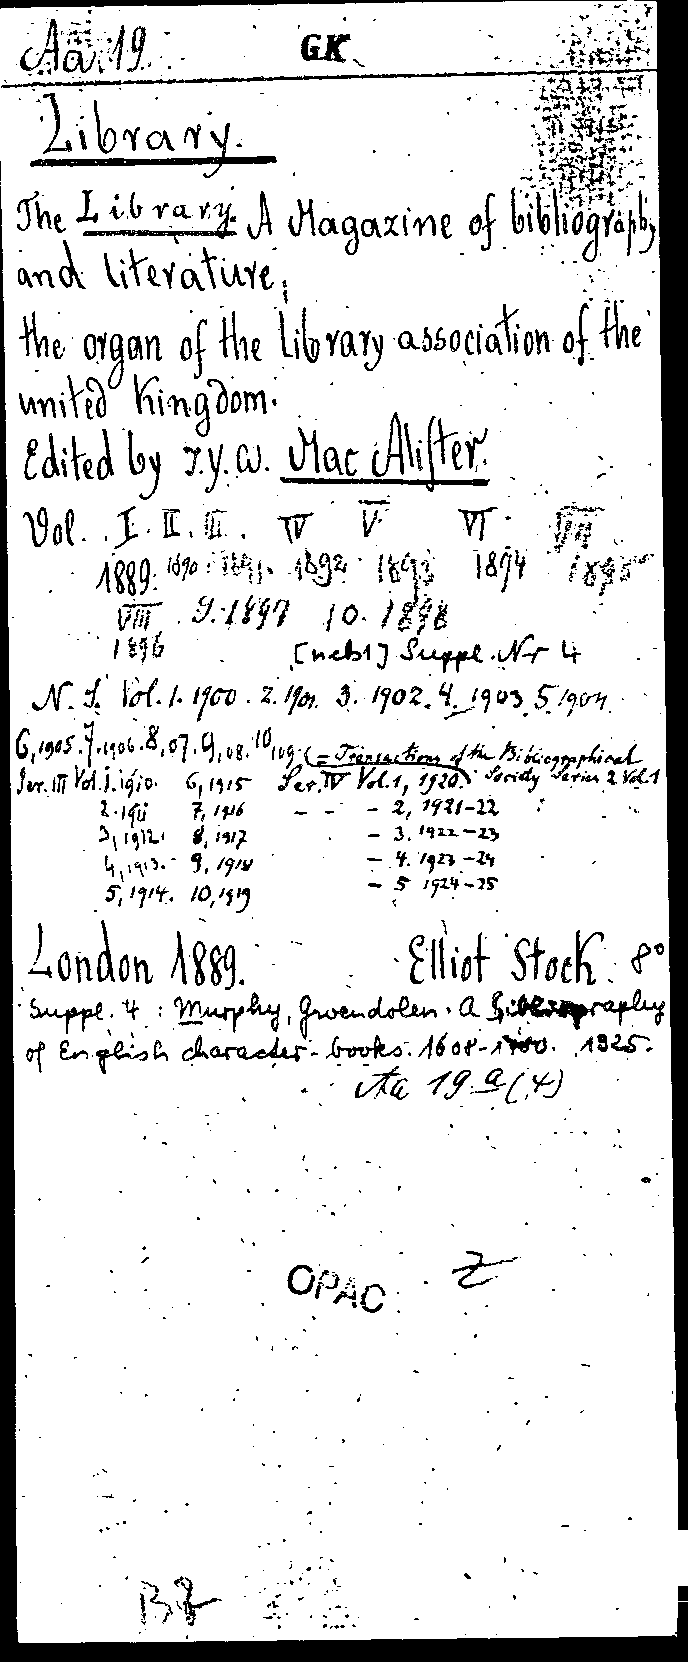 Aa. 19. GK
Library.
The Library. A Magazine of bibliography
and literature,
the organ of the library association of the
united Kingdom.
Edited by J.Y.W. Mac Alister.
Vol. I. II. III. IV V. VI. VII
1889. 1890. 1891. 1892 1893 1894 1895
VIII 9. 1897 10. 1898
1896 [nebst] Suppl. Nr 4
N. S. Vol. 1. 1900. 2. 1901. 3. 1902. 4. 1903. 5. 1904
6, 1905. 7. 1906. 8, 07. 9, 08. 10, 09. (= Transactions of the Bibliographical
Ser. III Vol. 1. 1910. 6, 1915 Ser. IV Vol. 1, 1920. Society Series 2 Vol. 1
2. 1911 7, 1916 - - - 2, 1921-22 :
3, 1912. 8, 1917 - 3. 1922-23
4, 1913. - 9, 1918 - 4. 1923-24
5, 1914. 10, 1919 - 5 1924-25
London 1889. Elliot Stock. 8°
Suppl. 4 : Murphy, Gwendolen. A Bibliography
of English character-books. 1608-1700. 1925.
Aa 19 a (4)
OPAC Z